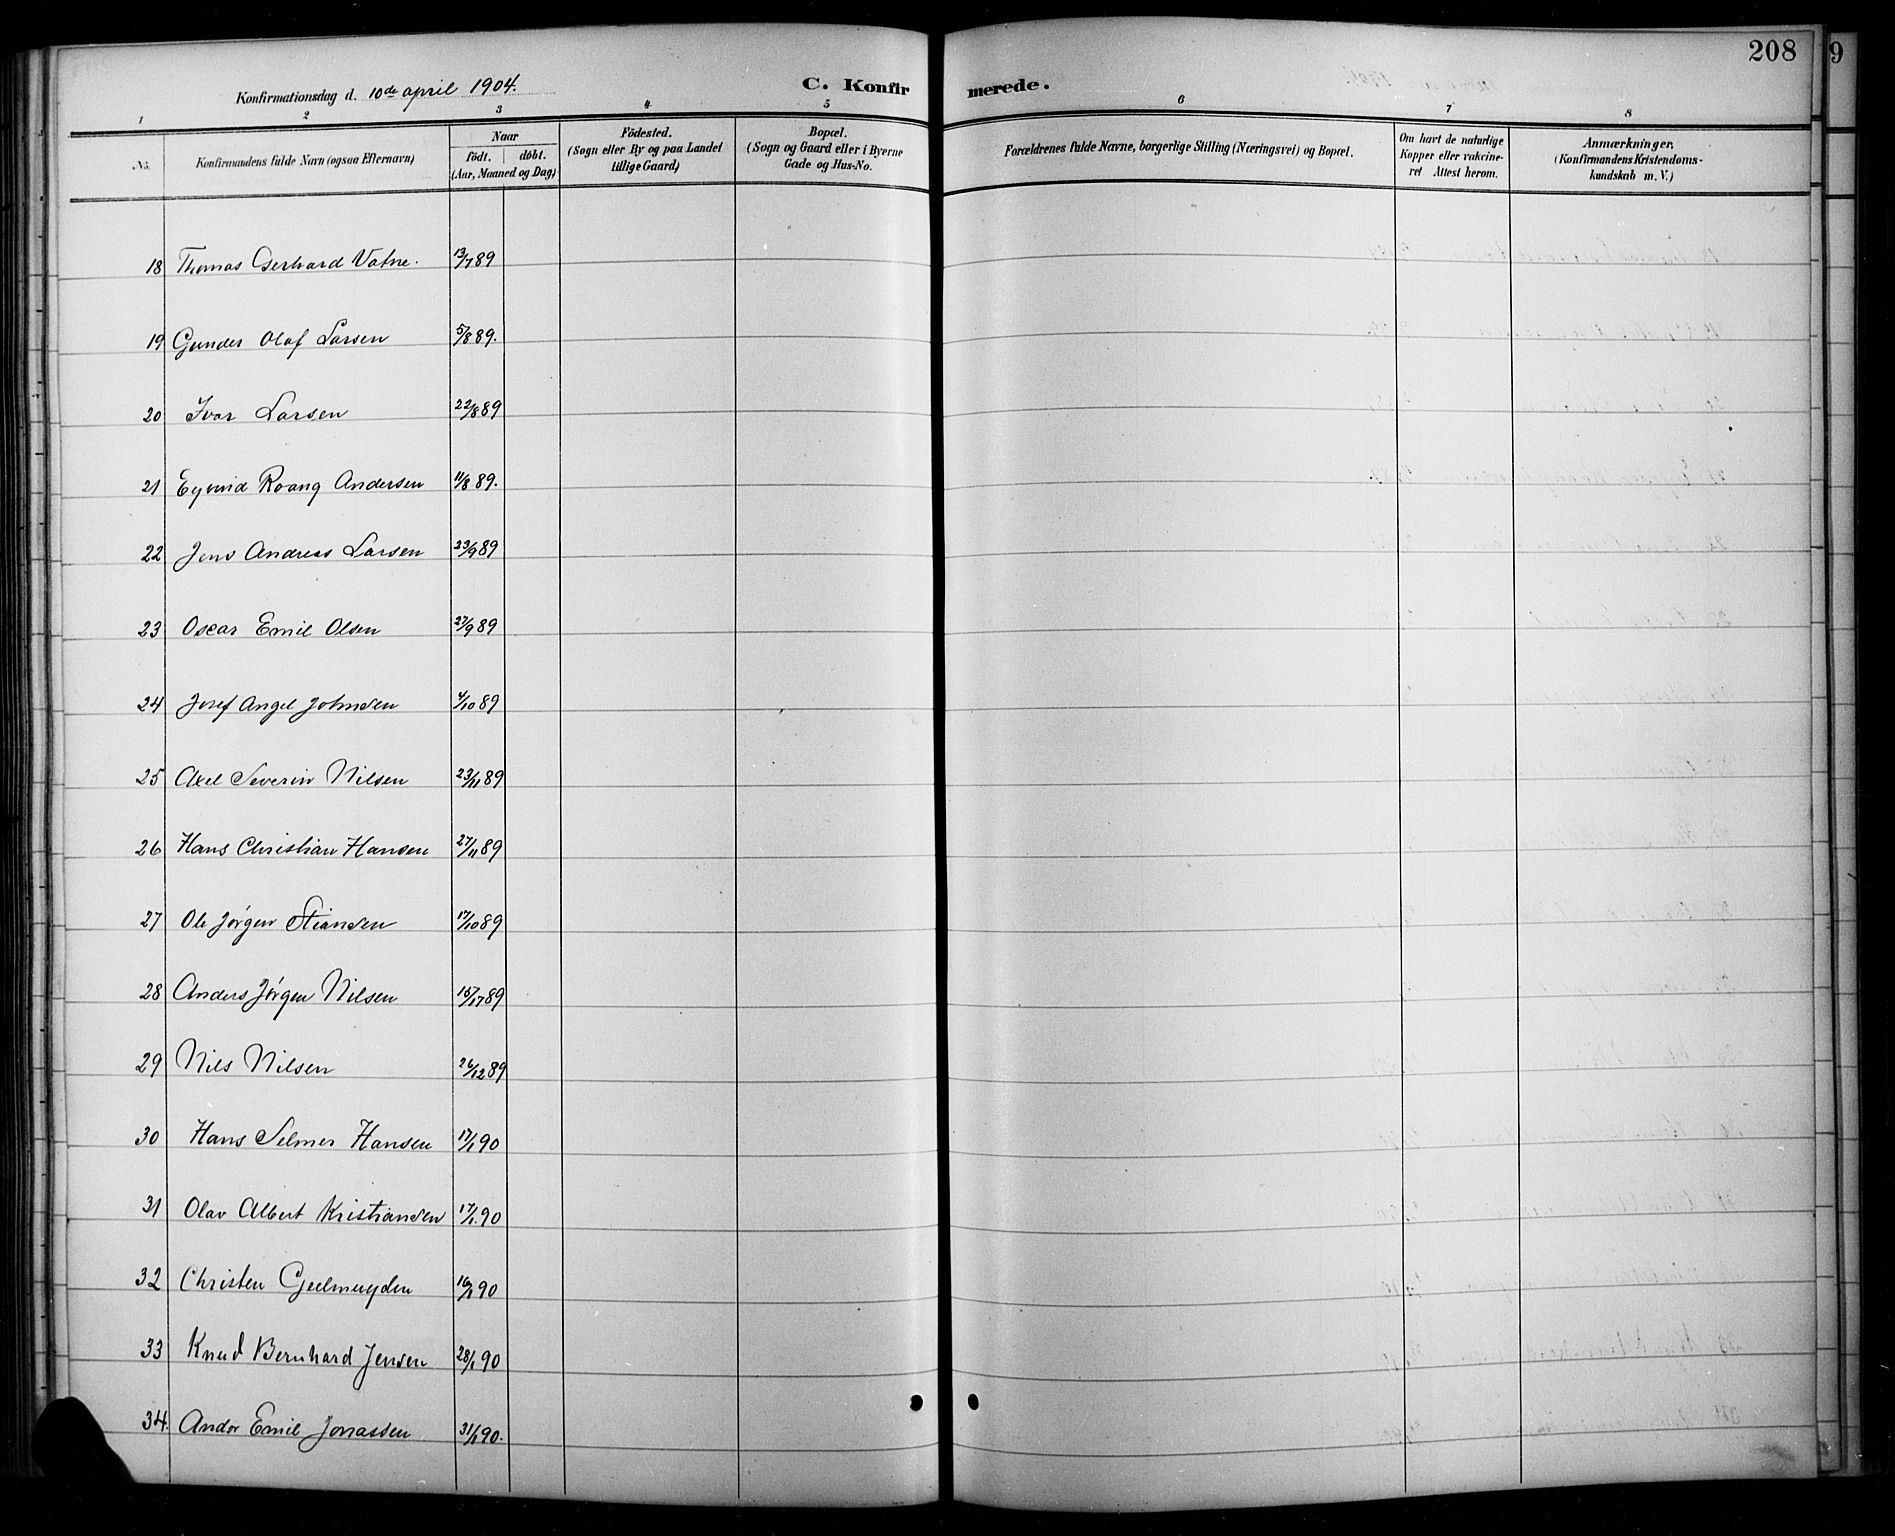 208
9
Konfirmationsdag d. 10de april 1904.
C. Konfirmerede.
1 2 3 4 5 6 7 8
No.
Konfirmandens fulde Navn (ogsaa Efternavn)
Naar
födt. döbt.
(Aar, Maaned og Dag)
Födested.
(Sogn eller By og paa Landet
tillige Gaard)
Bopæl.
(Sogn og Gaard eller i Byerne
Gade og Hus-No.
Forældrenes fulde Navne, borgerlige Stilling (Næringsvei) og Bopæl.
Om havt de naturlige
Kopper eller vakcine-
ret Attest herom.
Anmærkninger.
(Konfirmandens Kristendoms-
kundskab m. V.)
18 Thomas Gerhard Vatne. 13/7 89
19 Gunder Olaf Larsen 5/8 89.
20 Ivar Larsen 22/8 89
21 Eyvind Roang Andersen 11/8 89.
22 Jens Andreas Larsen 23/9 89
23 Oscar Emil Olsen 27/9 89
24 Josef Angel Johnsen 4/10 89
25 Axel Severin Nilsen 23/11 89
26 Hans Christian Hansen 27/11 89
27 Ole Jörgen Stiansen 17/10 89
28 Anders Jörgen Nilsen 89
29 Nils Nilsen 26/12 89
30 Hans Selmer Hansen 17/1 90
31 Olav Albert Kristiansen 17/1 90
32 Christen Geelmuyden 16/1 90
33 Knud Bernhard Jensen 28/1 90
34. Andor Emil Jonassen 31/1 90.